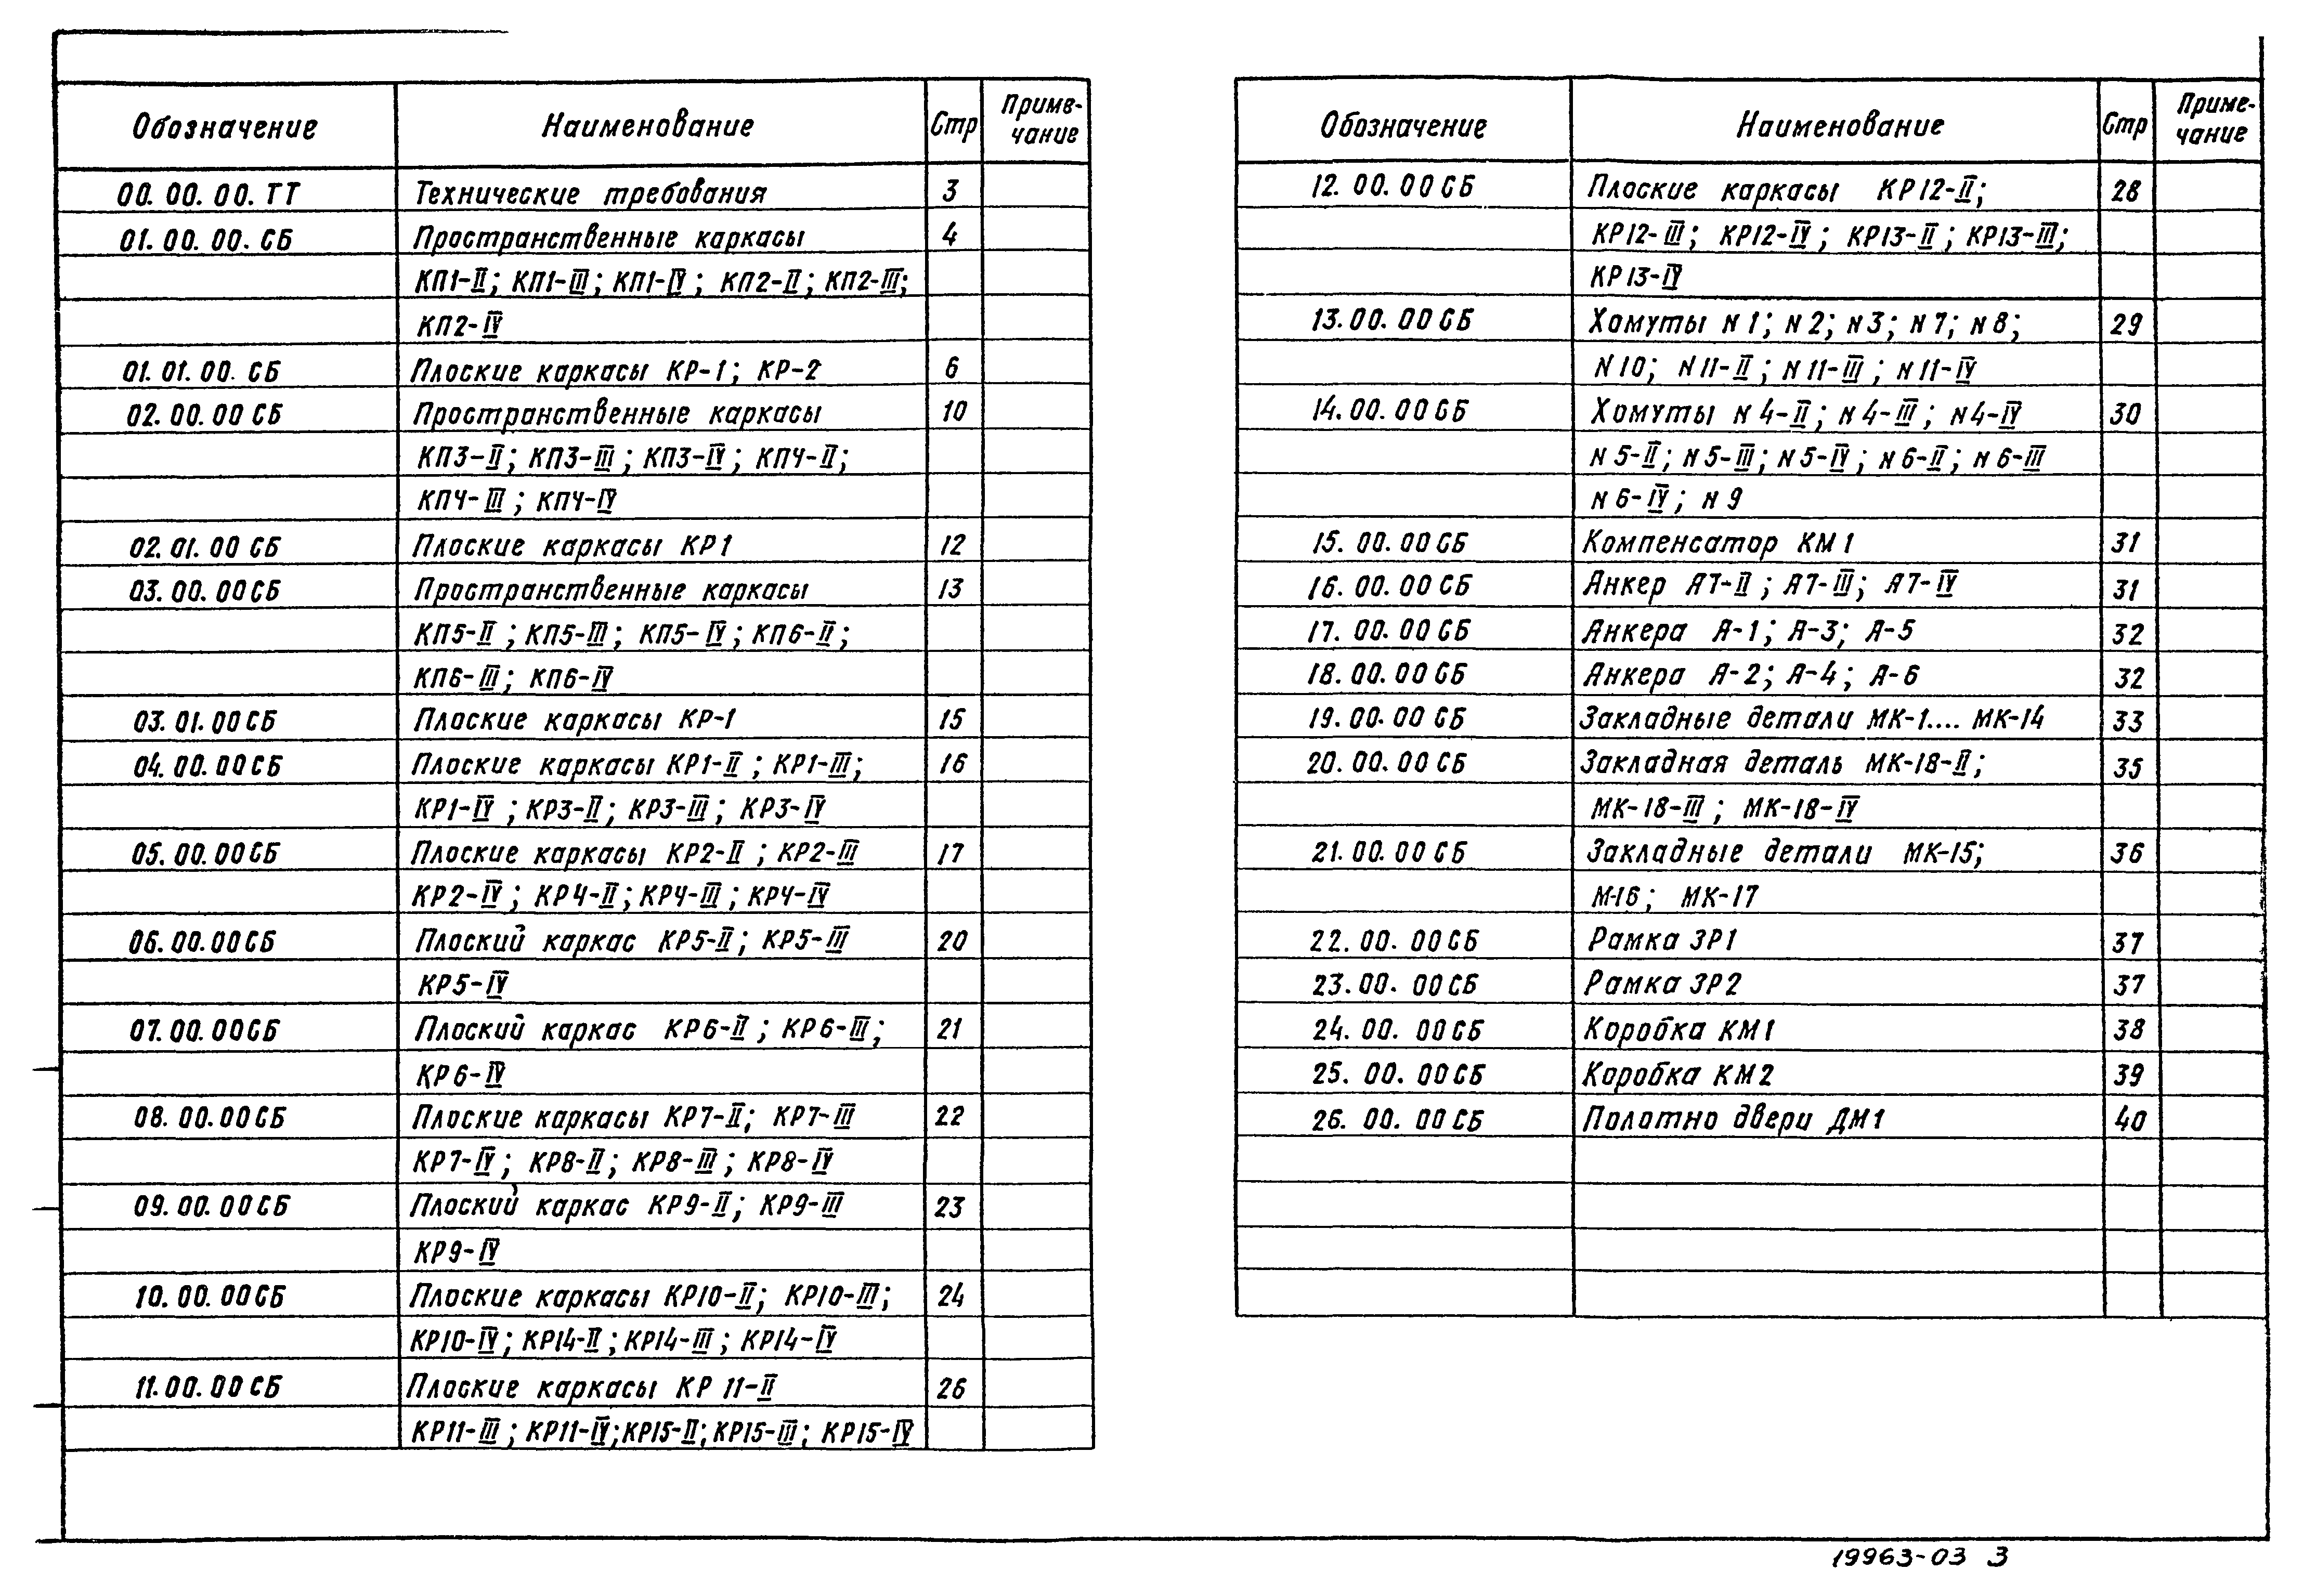 Обозначение Наименование Стр Приме-
чание
00. 00. 00. ТТ Технические требования 3
01. 00. 00. СБ Пространственные каркасы 4
КП1-II; КП1-III; КП1-IV; КП2-II; КП2-III;
КП2-IV
01. 01. 00. СБ Плоские каркасы КР-1; КР-2 6
02. 00. 00 СБ Пространственные каркасы 10
КП3-II; КП3-III; КП3-IV; КП4-II;
КП4-III; КП4-IV
02. 01. 00 СБ Плоские каркасы КР1 12
03. 00. 00 СБ Пространственные каркасы 13
КП5-II; КП5-III; КП5-IV; КП6-II;
КП6-III; КП6-IV
03. 01. 00 СБ Плоские каркасы КР-1 15
04. 00. 00 СБ Плоские каркасы КР1-II; КР1-III; 16
КР1-IV; КР3-II; КР3-III; КР3-IV
05. 00. 00 СБ Плоские каркасы КР2-II; КР2-III 17
КР2-IV; КР4-II; КР4-III; КР4-IV
06. 00. 00 СБ Плоский каркас КР5-II; КР5-III 20
КР5-IV
07. 00. 00 СБ Плоский каркас КР6-II; КР6-III; 21
КР6-IV
08. 00. 00 СБ Плоские каркасы КР7-II; КР7-III 22
КР7-IV; КР8-II; КР8-III; КР8-IV
09. 00. 00 СБ Плоский каркас КР9-II; КР9-III 23
КР9-IV
10. 00. 00 СБ Плоские каркасы КР10-II; КР10-III; 24
КР10-IV; КР14-II; КР14-III; КР14-IV
11. 00. 00 СБ Плоские каркасы КР 11-II 26
КР11-III; КР11-IV; КР15-II; КР15-III; КР15-IV
Обозначение Наименование Стр Приме-
чание
12. 00. 00 СБ Плоские каркасы КР12-II; 28
КР12-III; КР12-IV; КР13-II; КР13-III;
КР13-IV
13. 00. 00 СБ Хомуты N1; N2; N3; N7; N8; 29
N10; N11-II; N11-III; N11-IV
14. 00. 00 СБ Хомуты N4-II; N4-III; N4-IV 30
N5-II; N5-III; N5-IV; N6-II; N6-III
N6-IV; N9
15. 00. 00 СБ Компенсатор КМ1 31
16. 00. 00 СБ Анкер А7-II; А7-III; А7-IV 31
17. 00. 00 СБ Анкера А-1; А-3; А-5 32
18. 00. 00 СБ Анкера А-2; А-4; А-6 32
19. 00. 00 СБ Закладные детали МК-1.... МК-14 33
20. 00. 00 СБ Закладная деталь МК-18-II; 35
МК-18-III; МК-18-IV
21. 00. 00 СБ Закладные детали МК-15; 36
М-16; МК-17
22. 00. 00 СБ Рамка ЗР1 37
23. 00. 00 СБ Рамка ЗР2 37
24. 00. 00 СБ Коробка КМ1 38
25. 00. 00 СБ Коробка КМ2 39
26. 00. 00 СБ Полотно двери ДМ1 40
19963-03 3